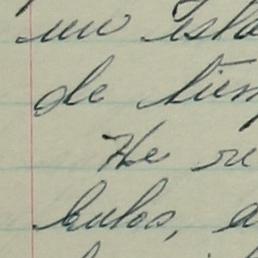 un esta
de tiem
He re
bulos, a